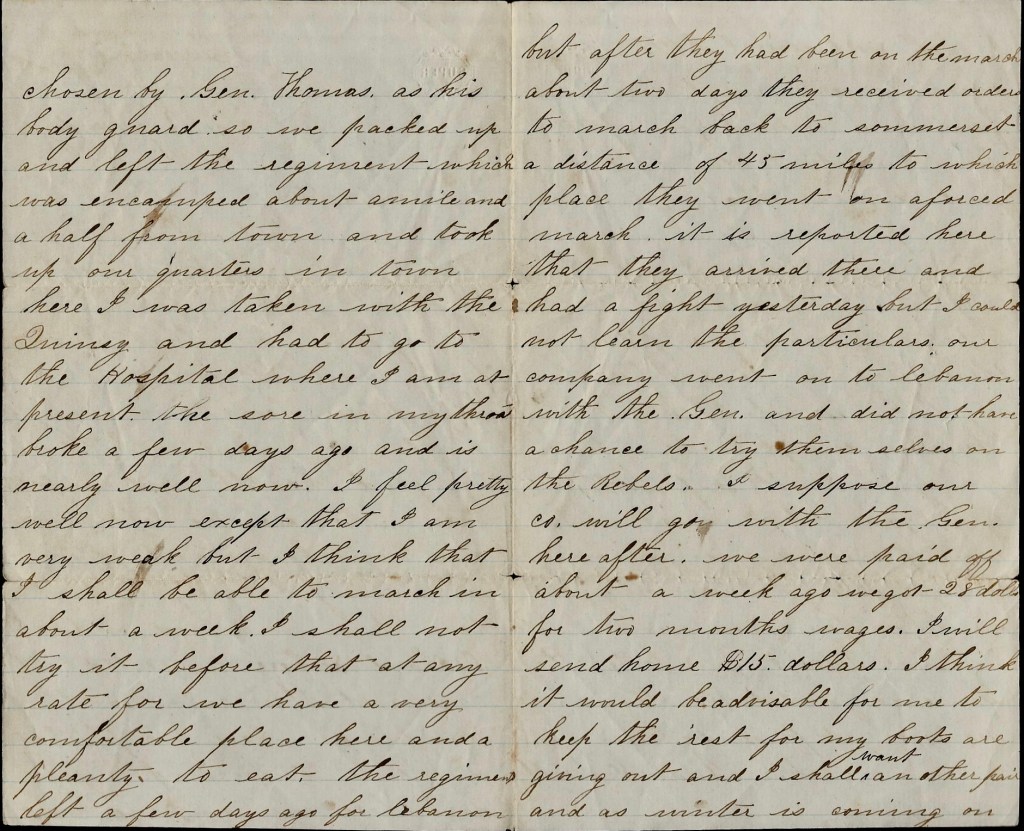 chosen by Gen. Thomas. as his
body guard. so we packed up
and left the regiment which
was encamped about amile and
a half from town and took
up our quarters in town
here I was taken with the
Quinsy and had to go to
the Hospital where I am at
present. the sore in my throa
broke a few days ago and is
nearly well now. I feel pretty
well now except that I am
very weak but I think that
I shall be able to march in
about a week. I shall not
try it before that at any
rate for we have a very
comfortable place here and a
pleanty to eat. the regimen
left a few days ago for lebanon
but after they had been on the march
about two days they received orders
to march back to sommerset
a distance of 45 miles to which
place they went on aforced
march. it is reported here
that they arrived there and
had a fight yesterday but I could
not learn the particulars. our
company went on to lebanon
with the Gen. and did not have
a chance to try them selves on
the Rebels. I suppose our
co. will go with the Gen.
here after. we were paid off
about a week ago we got 28 dolls
for two months wages. I will
send home 15. dollars. I think
it would beadvisable for me to
keep the rest for my boots are
giving out and I shall want an other pair
and as winter is coming on